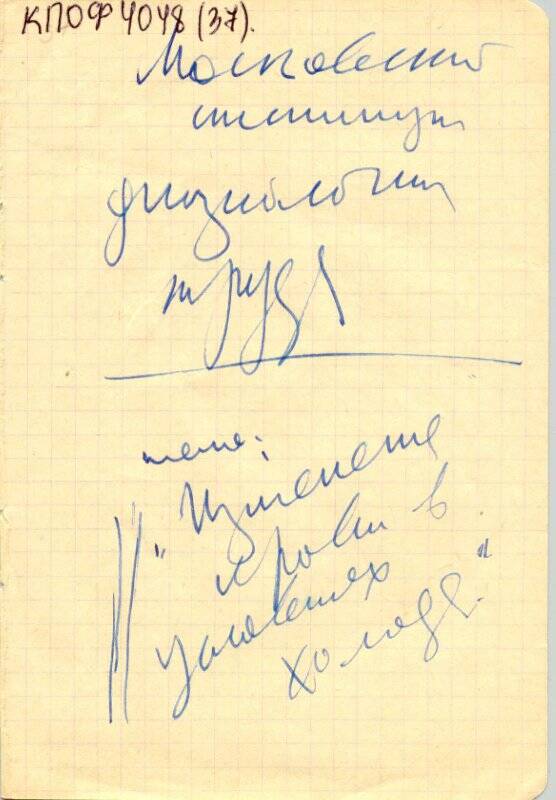 КПОФ 4048 (37).
Московский
институт
физиологии
труда
тема:
"Изменение
крови в
условиях
холода."